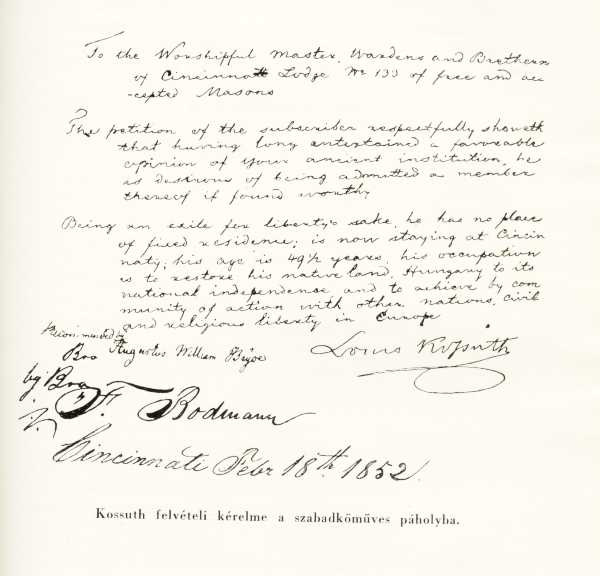 To the Worshipful Master, Wardens and Brethern
of Cincinnati Lodge No 133 of free and ac-
-cepted Masons
The petition of the subscriber respectfully showeth
that having long entertained a favorable
opinion of your ancient institution, he
is desirous of being admitted a member
thereof if found worthy
Being an exile for liberty's sake, he has no place
of fixed residence; is now staying at Cincin
naty; his age is 49½ years, his occupation
is to restore his native land, Hungary to its
national independence and to achieve by com
munity of action with other nations, civil
and religious liberty in Europe
Louis Kossuth
Recommended by
Bro Augustus William
by Bro
F. Bodmann
Cincinnati Febr 18th 1852.
Kossuth felvételi kérelme a szabadkőműves páholyba.